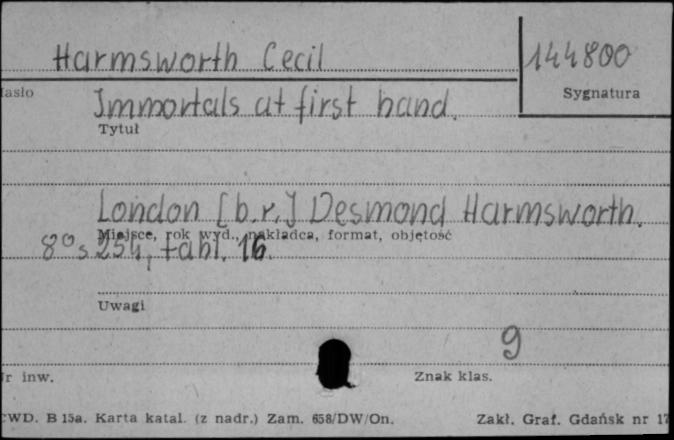 Harmsworth Cecil
144800
Sygnatura
Immortals at first hand.
Tytuł
London [b.r.] Desmond Harmsworth.
Miejsce, rok wyd., nakładca, format, objętość
8° s 254, tabl. 16.
Uwagi
9
inw.
Znak klas.
B 15a. Karta katal. (z nadr.) Zam. 658/DW/On.
Zakł. Graf. Gdańsk nr